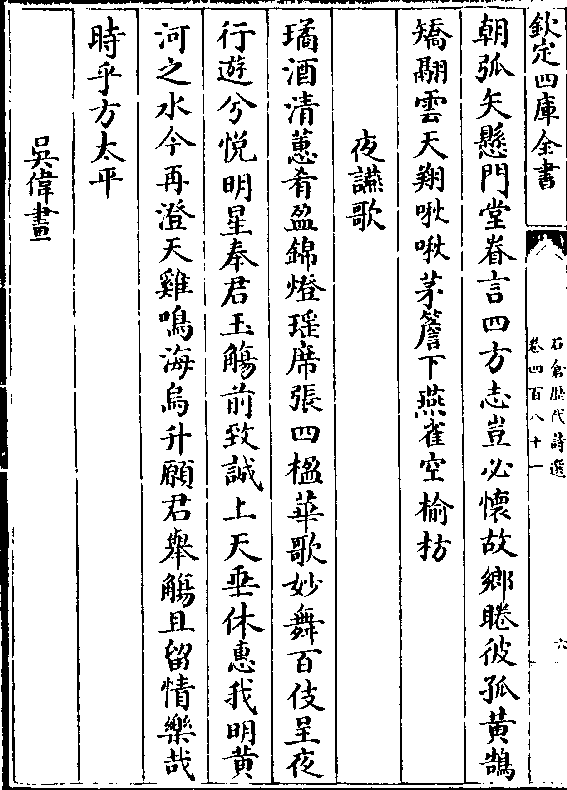 欽定四庫全書
石倉歷代詩選
卷四百八十一
六
朝弧矢懸門堂眷言四方志豈必懷故鄉睠彼孤黃鵠
矯翮雲天翔啾啾茅簷下燕雀空榆枋
夜讌歌
璚酒清蕙肴盈錦燈瑤席張四楹華歌妙舞百伎呈夜
行遊兮悅明星奉君玉觴前致誠上天垂休惠我明黃
河之水今再澄天雞鳴海烏升願君舉觴且留情樂哉
時乎方太平
吳偉畫